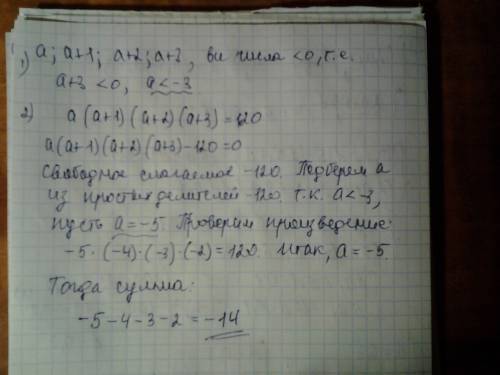 1) a; a+1; a+2; a+3, вы числа <0, т.е.
a+3 <0, a<-3
2) a(a+1)(a+2)(a+3)=120
a(a+1)(a+2)(a+3)-120=0
Свободное слагаемое -120. Подберем a
из простых делителей -120. Т.к. a<-3,
пусть a=-5. Проверим произведение:
-5·(-4)·(-3)·(-2)=120. Итак, a=-5.
Тогда сумма:
-5-4-3-2=-14